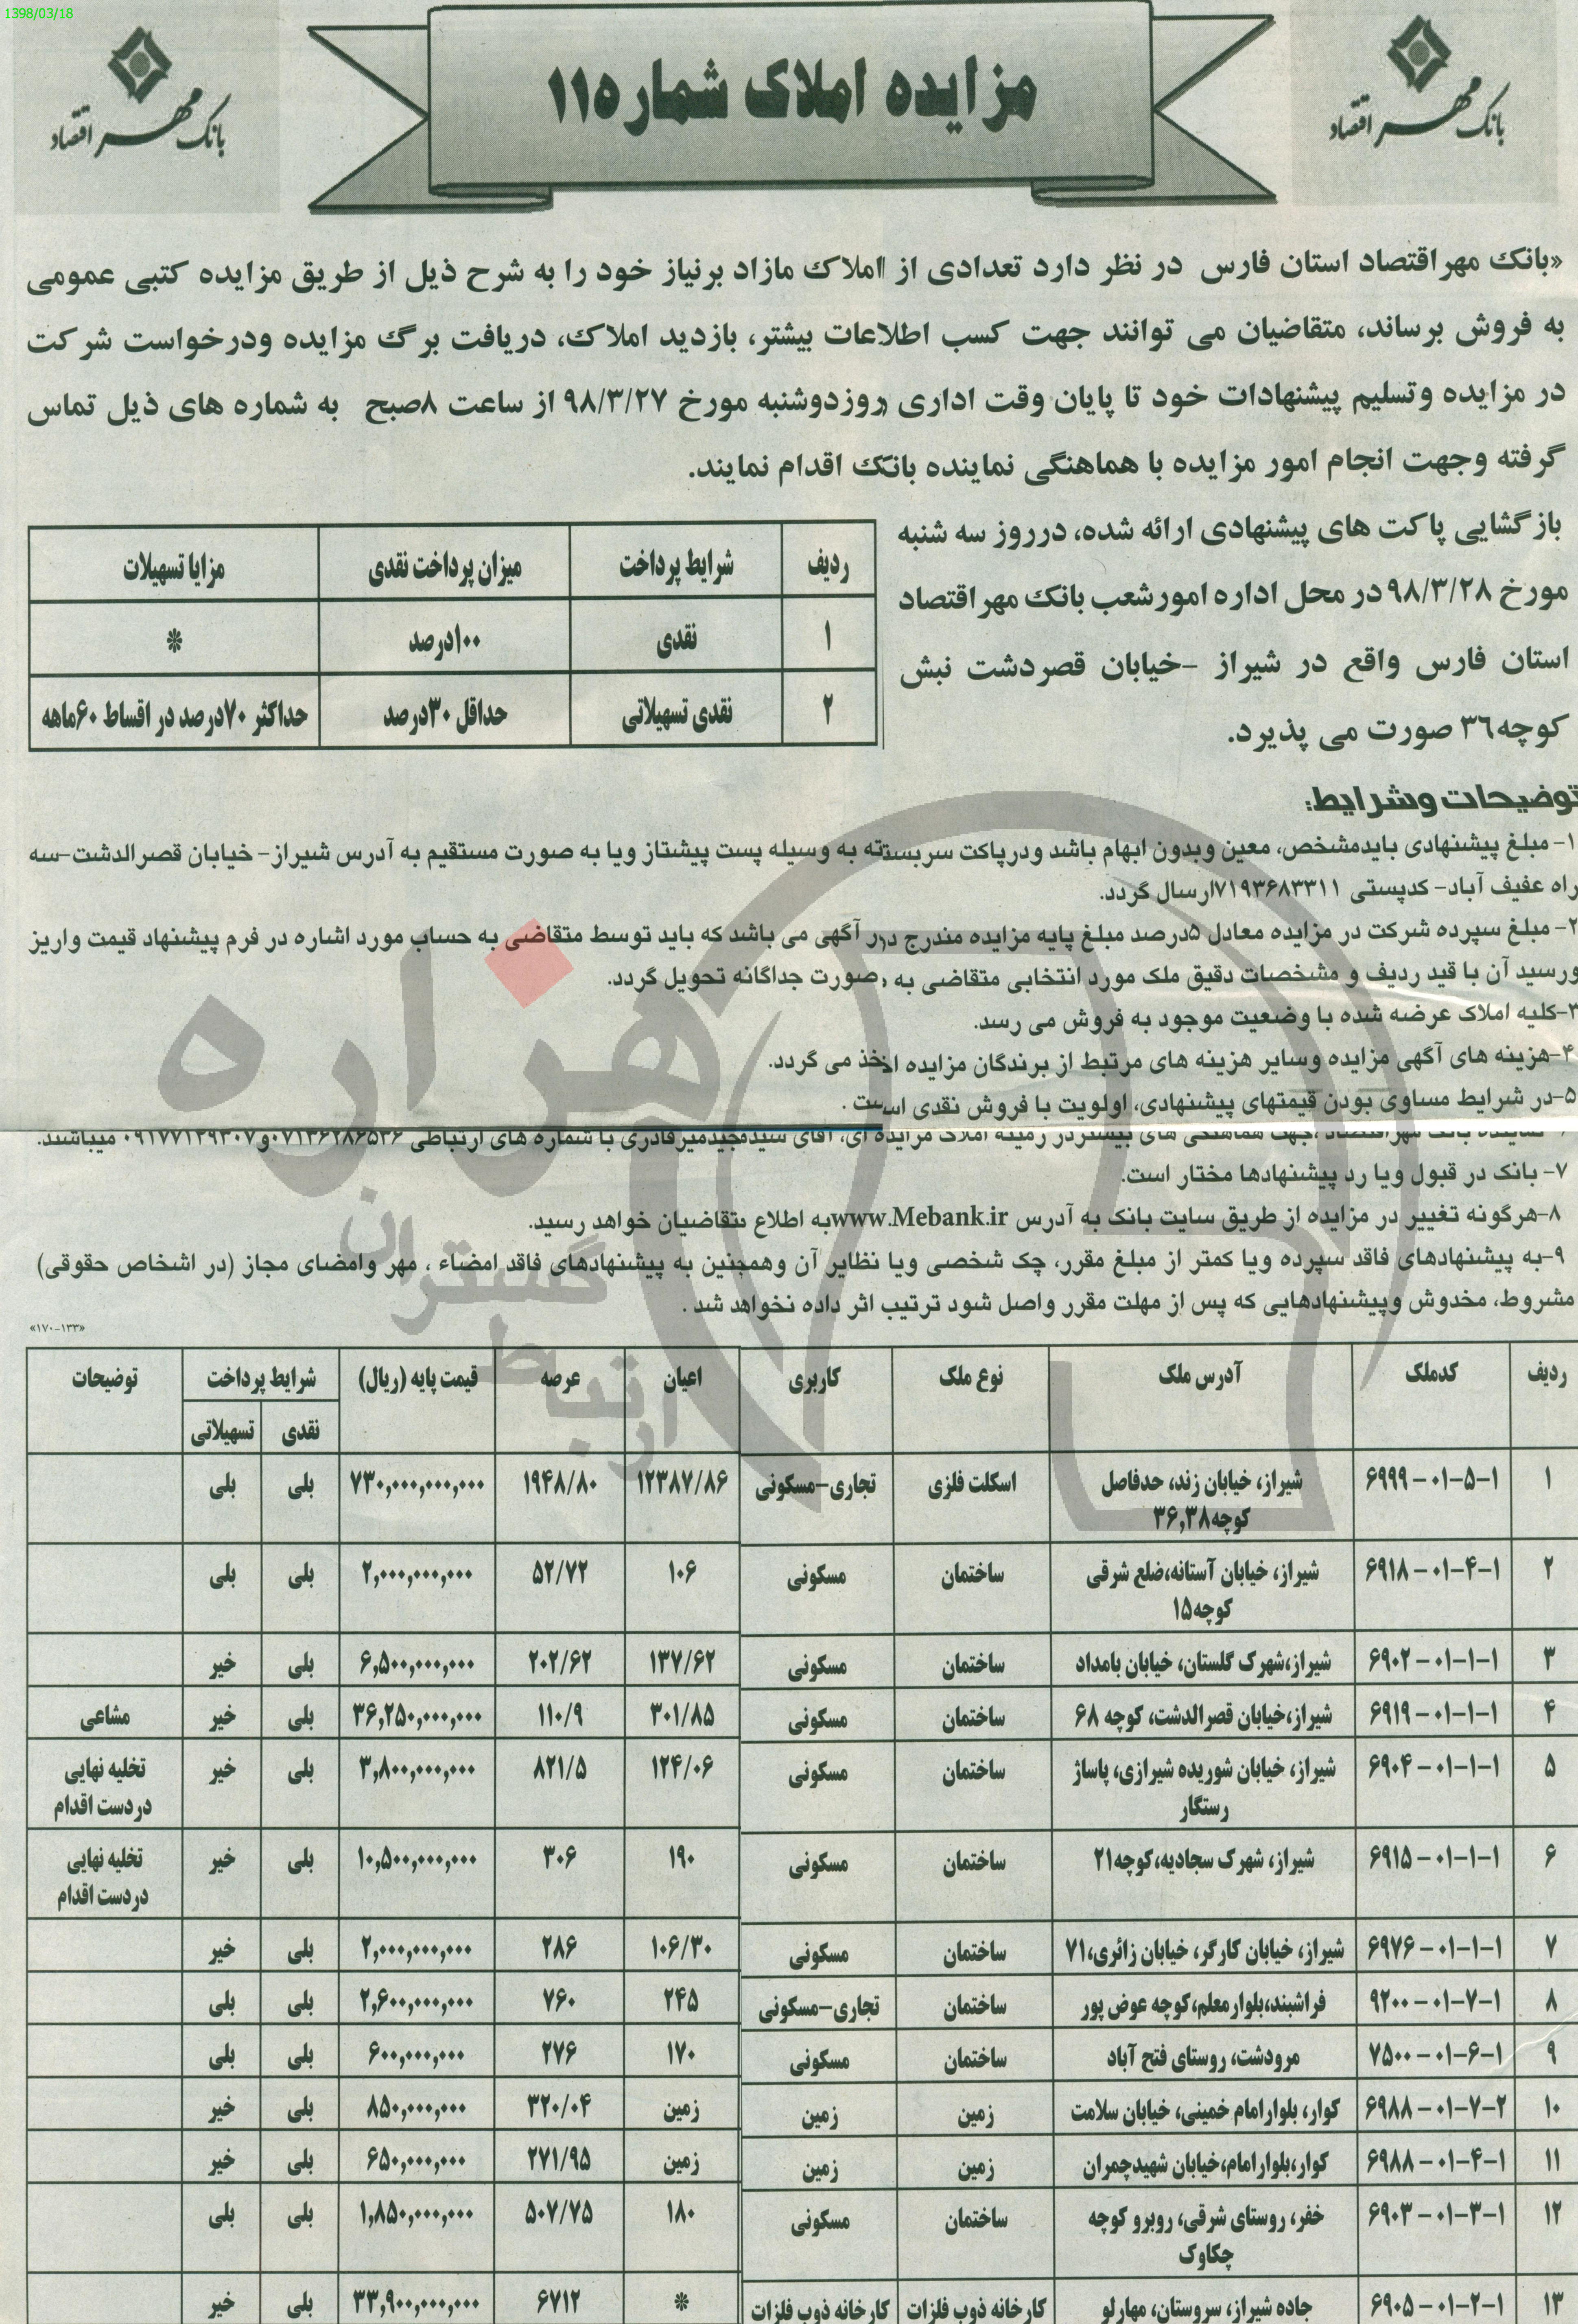 1398/03/18
بانک مهر اقتصاد
مزایده املاک شماره۱۱
بانک مهر اقتصاد
«بانک مهراقتصاد استان فارس در نظر دارد تعدادی از املاک مازاد برنیاز خود را به شرح ذیل از طریق مزایده کتبی عمومی
به فروش برساند، متقاضیان می توانند جهت کسب اطلاعات بیشتر، بازدید املاک، دریافت برگ مزایده ودرخواست شرکت
در مزایده وتسلیم پیشنهادات خود تا پایان وقت اداری روزدوشنبه مورخ ۹۸/۳/۲۷ از ساعت ۸صبح به شماره های ذیل تماس
گرفته وجهت انجام امور مزایده با هماهنگی نماینده بانک اقدام نمایند.
بازگشایی پاکت های پیشنهادی ارائه شده، درروز سه شنبه
مورخ ۹۸/۳/۲۸در محل اداره امورشعب بانک مهراقتصاد
استان فارس واقع در شیراز -خیابان قصردشت نبش
کوچه۳۶ صورت می پذیرد.
ردیف شرایط پرداخت میزان پرداخت نقدی مزایا تسهیلات
۱ نقدی ۱۰۰درصد *
۲ نقدی تسهیلاتی حداقل ۳۰درصد حداکثر ۷۰درصد در اقساط ۶۰ماهه
توضیحات وشرایط:
۱- مبلغ پیشنهادی بایدمشخص، معین وبدون ابهام باشد ودرپاکت سربسته به وسیله پست پیشتاز ویا به صورت مستقیم به آدرس شیراز- خیابان قصرالدشت-سه
راه عفیف آباد- کدپستی ۷۱۹۳۶۸۳۳۱۱ارسال گردد.
۲- مبلغ سپرده شرکت در مزایده معادل ۵درصد مبلغ پایه مزایده مندرج در آگهی می باشد که باید توسط متقاضی به حساب مورد اشاره در فرم پیشنهاد قیمت واریز
ورسید آن با قید ردیف و مشخصات دقیق ملک مورد انتخابی متقاضی به صورت جداگانه تحویل گردد.
۳-کلیه املاک عرضه شده با وضعیت موجود به فروش می رسد.
۴-هزینه های آگهی مزایده وسایر هزینه های مرتبط از برندگان مزایده اخذ می گردد.
۵-در شرایط مساوی بودن قیمتهای پیشنهادی، اولویت با فروش نقدی است .
نماینده بانک مهراقتصاد جهت هماهنگی های بیشتردر زمینه املاک مزایده ای، آقای سیدمجیدمیرقادری با شماره های ارتباطی ۰۷۱۳۶۲۸۶۵۳۶و۰۹۱۷۷۱۲۹۳۰۷ میباشند.
۷- بانک در قبول ویا رد پیشنهادها مختار است.
۸-هرگونه تغییر در مزایده از طریق سایت بانک به آدرس www.Mebank.irبه اطلاع متقاضیان خواهد رسید.
۹-به پیشنهادهای فاقد سپرده ویا کمتر از مبلغ مقرر، چک شخصی ویا نظایر آن وهمچنین به پیشنهادهای فاقد امضاء ، مهر وامضای مجاز (در اشخاص حقوقی)
مشروط، مخدوش وپیشنهادهایی که پس از مهلت مقرر واصل شود ترتیب اثر داده نخواهد شد .
«۱۷۰-۱۳۳»
هزاره
گستران
ارتباط
ردیف کدملک آدرس ملک نوع ملک کاربری اعیان عرصه قیمت پایه (ریال) شرایط پرداخت توضیحات
نقدی تسهیلاتی
۱ ۶۹۹۹-۰۱-۵-۱ شیراز، خیابان زند، حدفاصل اسکلت فلزی تجاری-مسکونی ۱۲۳۸۷/۸۶ ۱۹۴۸/۸۰ ۷۳۰,۰۰۰,۰۰۰,۰۰۰ بلی بلی
کوچه۳۶,۳۸
۲ ۶۹۱۸-۰۱-۴-۱ شیراز، خیابان آستانه،ضلع شرقی ساختمان مسکونی ۱۰۶ ۵۲/۷۲ ۲,۰۰۰,۰۰۰,۰۰۰ بلی بلی
کوچه۱۵
۳ ۶۹۰۲-۰۱-۱-۱ شیراز،شهرک گلستان، خیابان بامداد ساختمان مسکونی ۱۳۷/۶۲ ۲۰۲/۶۲ ۶,۵۰۰,۰۰۰,۰۰۰ بلی خیر
۴ ۶۹۱۹-۰۱-۱-۱ شیراز،خیابان قصرالدشت، کوچه ۶۸ ساختمان مسکونی ۳۰۱/۸۵ ۱۱۰/۹ ۳۶,۲۵۰,۰۰۰,۰۰۰ بلی خیر مشاعی
۵ ۶۹۰۴-۰۱-۱-۱ شیراز، خیابان شوریده شیرازی، پاساژ ساختمان مسکونی ۱۲۴/۰۶ ۸۲۱/۵ ۳,۸۰۰,۰۰۰,۰۰۰ بلی خیر تخلیه نهایی
رستگار دردست اقدام
۶ ۶۹۱۵-۰۱-۱-۱ شیراز، شهرک سجادیه،کوچه۲۱ ساختمان مسکونی ۱۹۰ ۳۰۶ ۱۰,۵۰۰,۰۰۰,۰۰۰ بلی خیر تخلیه نهایی
دردست اقدام
۷ ۶۹۷۶-۰۱-۱-۱ شیراز، خیابان کارگر، خیابان زائری،۷۱ ساختمان مسکونی ۱۰۶/۳۰ ۲۸۶ ۲,۰۰۰,۰۰۰,۰۰۰ بلی خیر
۸ ۹۲۰۰-۰۱-۷-۱ فراشبند،بلوارمعلم،کوچه عوض پور ساختمان تجاری-مسکونی ۲۴۵ ۷۶۰ ۲,۶۰۰,۰۰۰,۰۰۰ بلی بلی
۹ ۷۵۰۰-۰۱-۶-۱ مرودشت، روستای فتح آباد ساختمان مسکونی ۱۷۰ ۲۷۶ ۶۰۰,۰۰۰,۰۰۰ بلی بلی
۱۰ ۶۹۸۸-۰۱-۷-۲ کوار، بلوارامام خمینی، خیابان سلامت زمین زمین زمین ۳۲۰/۰۴ ۸۵۰,۰۰۰,۰۰۰ بلی خیر
۱۱ ۶۹۸۸-۰۱-۴-۱ کوار،بلوارامام،خیابان شهیدچمران زمین زمین زمین ۲۷۱/۹۵ ۶۵۰,۰۰۰,۰۰۰ بلی خیر
۱۲ ۶۹۰۳-۰۱-۳-۱ خفر، روستای شرقی، روبرو کوچه ساختمان مسکونی ۱۸۰ ۵۰۷/۷۵ ۱,۸۵۰,۰۰۰,۰۰۰ بلی بلی
چکاوک
۱۳ ۶۹۰۵-۰۱-۲-۱ جاده شیراز، سروستان، مهارلو کارخانه ذوب فلزات کارخانه ذوب فلزات * ۶۷۱۲ ۳۳,۹۰۰,۰۰۰,۰۰۰ بلی خیر